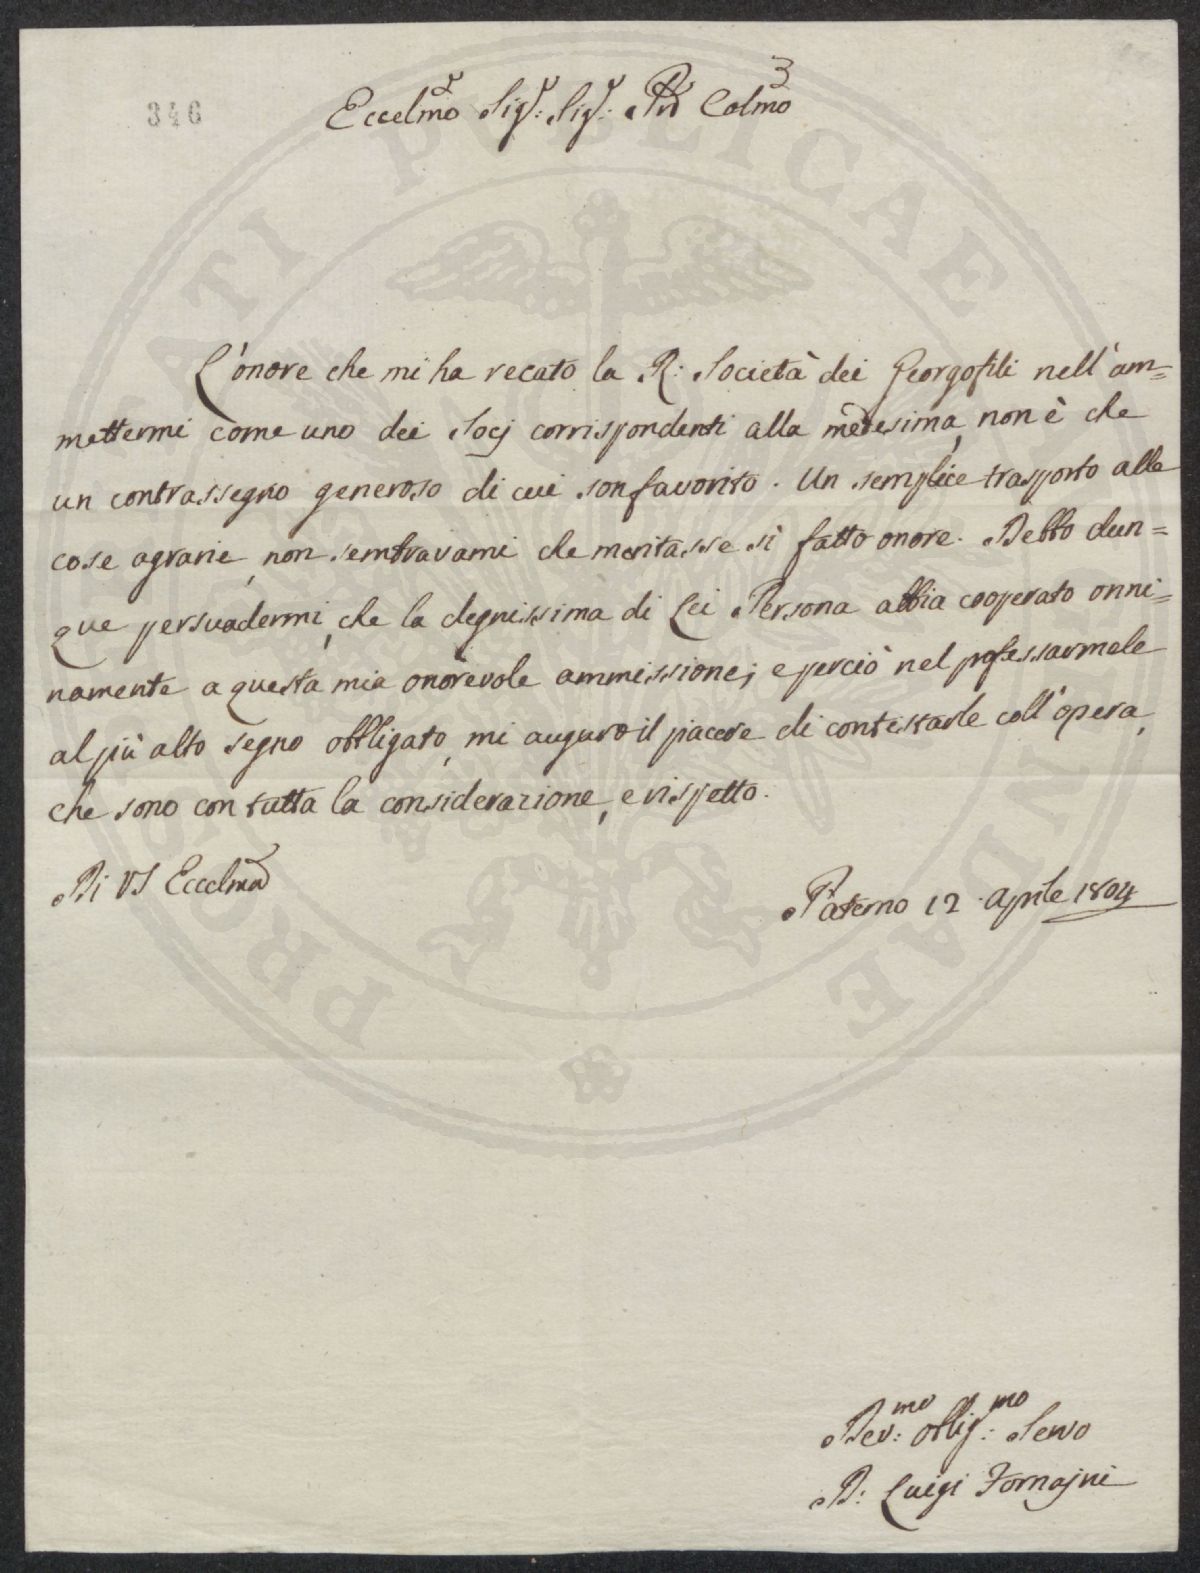 346
3
Eccelmo Sigr: Sigr: Prõn Colmo
L'onore che mi ha recato la R: Società dei Georgofili nell'am=
mettermi come uno dei Socj corrispondenti alla medesima, non è che
un contrassegno generoso di cui son favorito. Un semplice trasporto alle
cose agrarie, non sembravami che meritasse sì fatto onore. Debbo dun=
que persuadermi, che la degnissima di Lei Persona abbia cooperato onni=
namente a questa mia onorevole ammissione; e perciò nel professarmele
al più alto segno obbligato, mi auguro il piacere di contestarle coll'opera,
che sono con tutta la considerazione, e rispetto.
Di VS Eccelma
Paterno 12 Aprile 1804
Dev:mo obblig:mo Servo
D: Luigi Fornajni
PROSPERITATI PUBLICAE AUDITAE